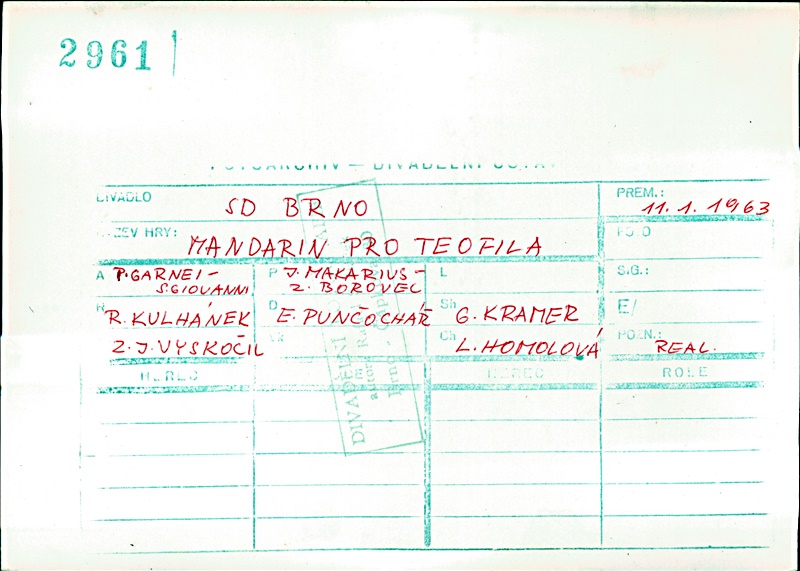 2961
FOTOARCHIV — DIVADELNÍ ÚSTAV
DIVADLO SD BRNO PREM.: 11.1.1963
NÁZEV HRY: MANDARIN PRO TEOFILA
A P. GARNEI - S. GIOVANNI P J. MAKARIUS - Z. BOROVEC L SIG.:
R R. KULHÁNEK D E. PUNČOCHÁŘ Sh G. KRAMER E/
Z. J. VYSKOČIL Ch L. HOMOLOVÁ POZN.: REAL.
HEREC HEREC ROLE
DIVADELNÍ